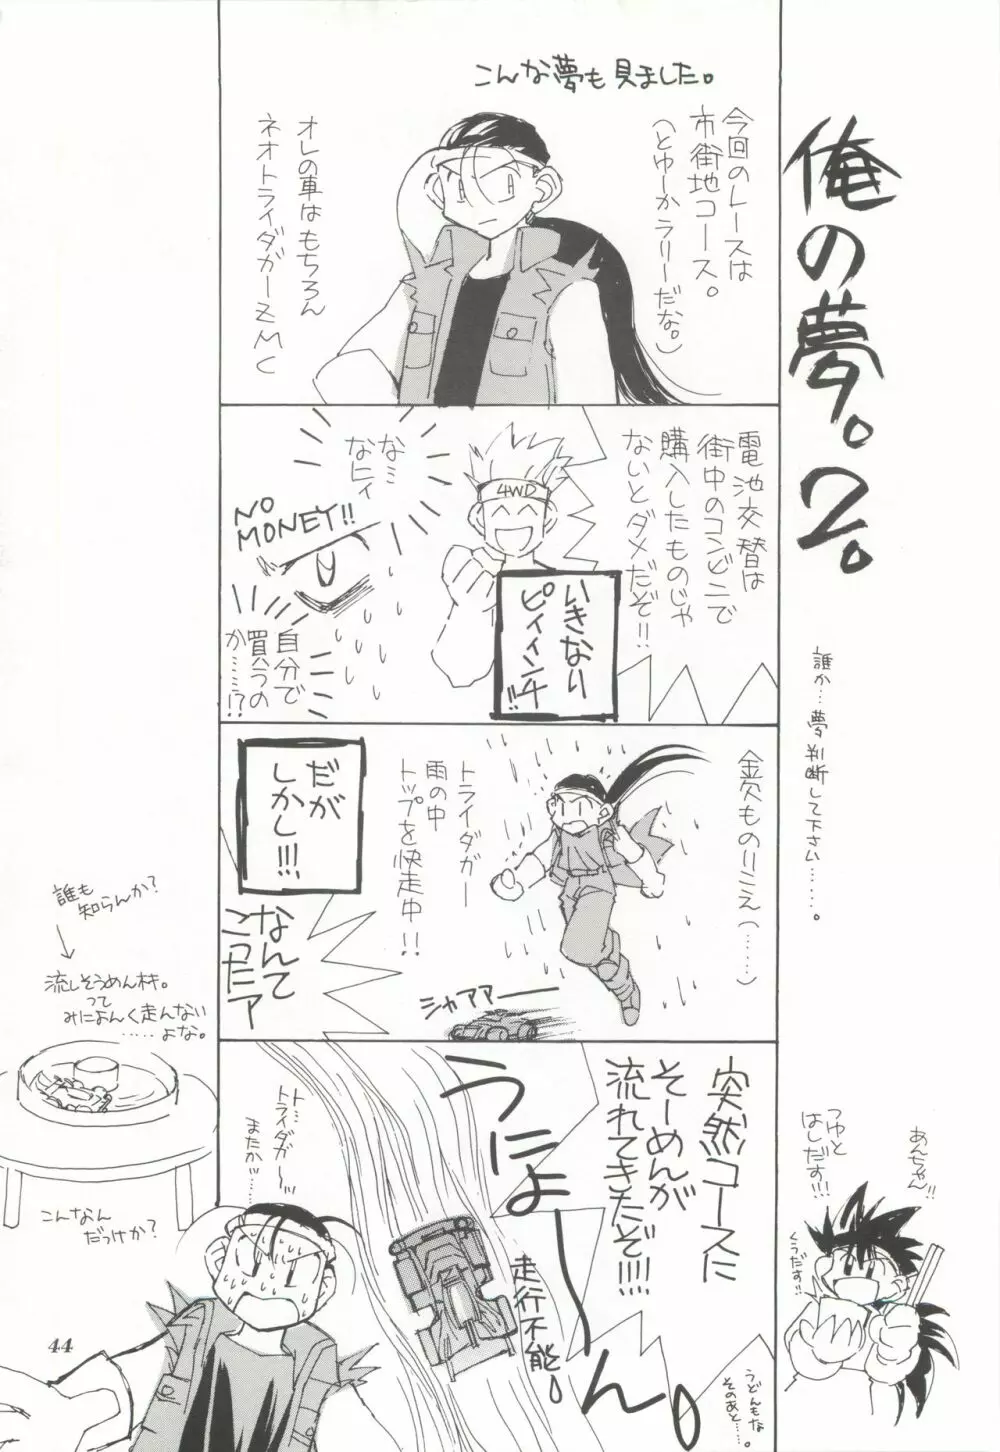 俺の夢。2。
誰か…夢判断して下さい……。
こんな夢も見ました。
今回のレースは
市街地コース。
(とゆーかラリーだな。)
オレの車はもちろん
ネオトライダガーZMC
電池交替は
街中のコンビニで
購入したものじゃ
ないとダメだぞ!!
4WD
いきなり
ピィィンチ!!
なミ
なヒィ
NO
MONEY!!
自分で
買うの
か……!?
トライダガー
雨の中
トップを快走中!!
シャアアー
だが
しかし!!!
なんて
こったァ
突然コースに
そーめんが
流れてきたぞ!!!!
うにょーーん。
走行不能。
うどんもな
そのあと…。
ト…
トライダガ〜
またか…
あんちゃん!!
つゆと
はしだす!!!
くうだす!!
誰も
知らんか?
流しそうめん材。
って
みによんく走んない
……よな。
こんなん
だっけか?
44